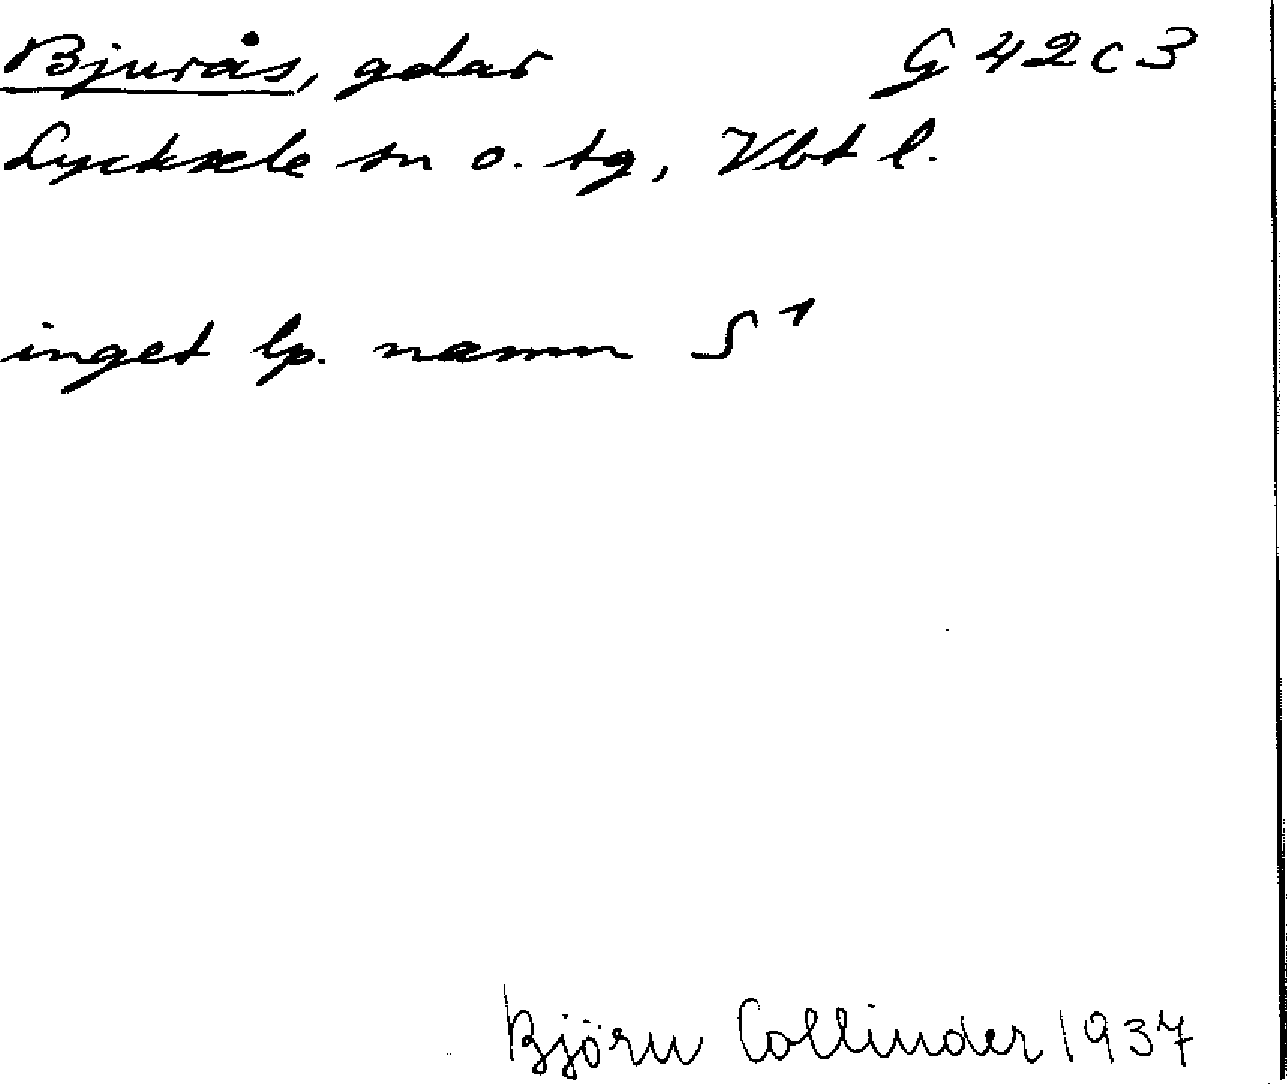 Bjurås, gdar G 42 c 3
Lycksele sn o. tg, Vbt l.
inget lp. namn S 1
Björn Collinder 1937